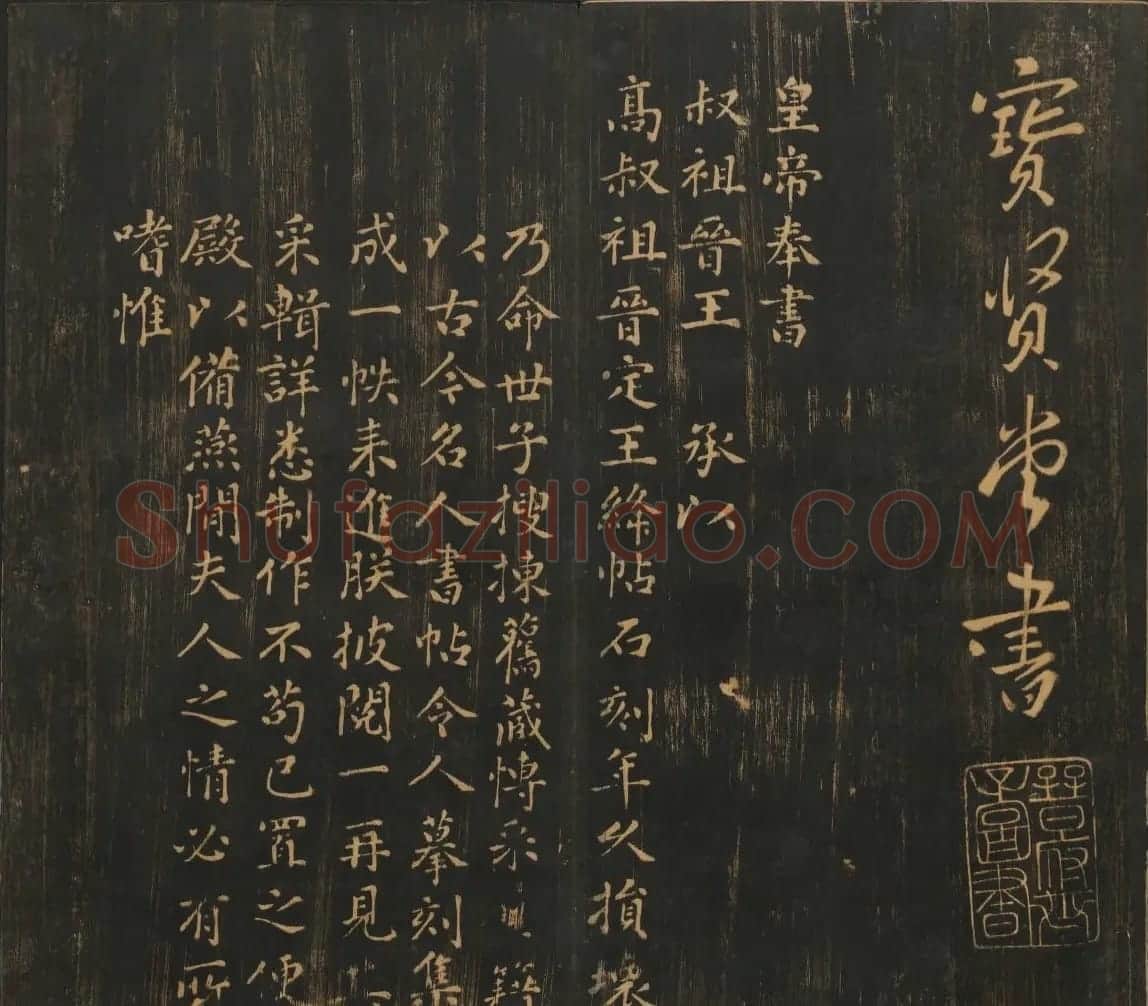 寳贤堂書
皇帝奉書
叔祖晉王 承以
髙叔祖晉定王絳帖石刻年久損壊
乃命世子搜揀舊蔵愽采
以古今名人書帖令人摹刻集
成一帙来進朕披閲一再見
采輯詳悉制作不茍已置之便
殿以備燕閒夫人之情必有所
嗜惟
Shufaziliao.COM